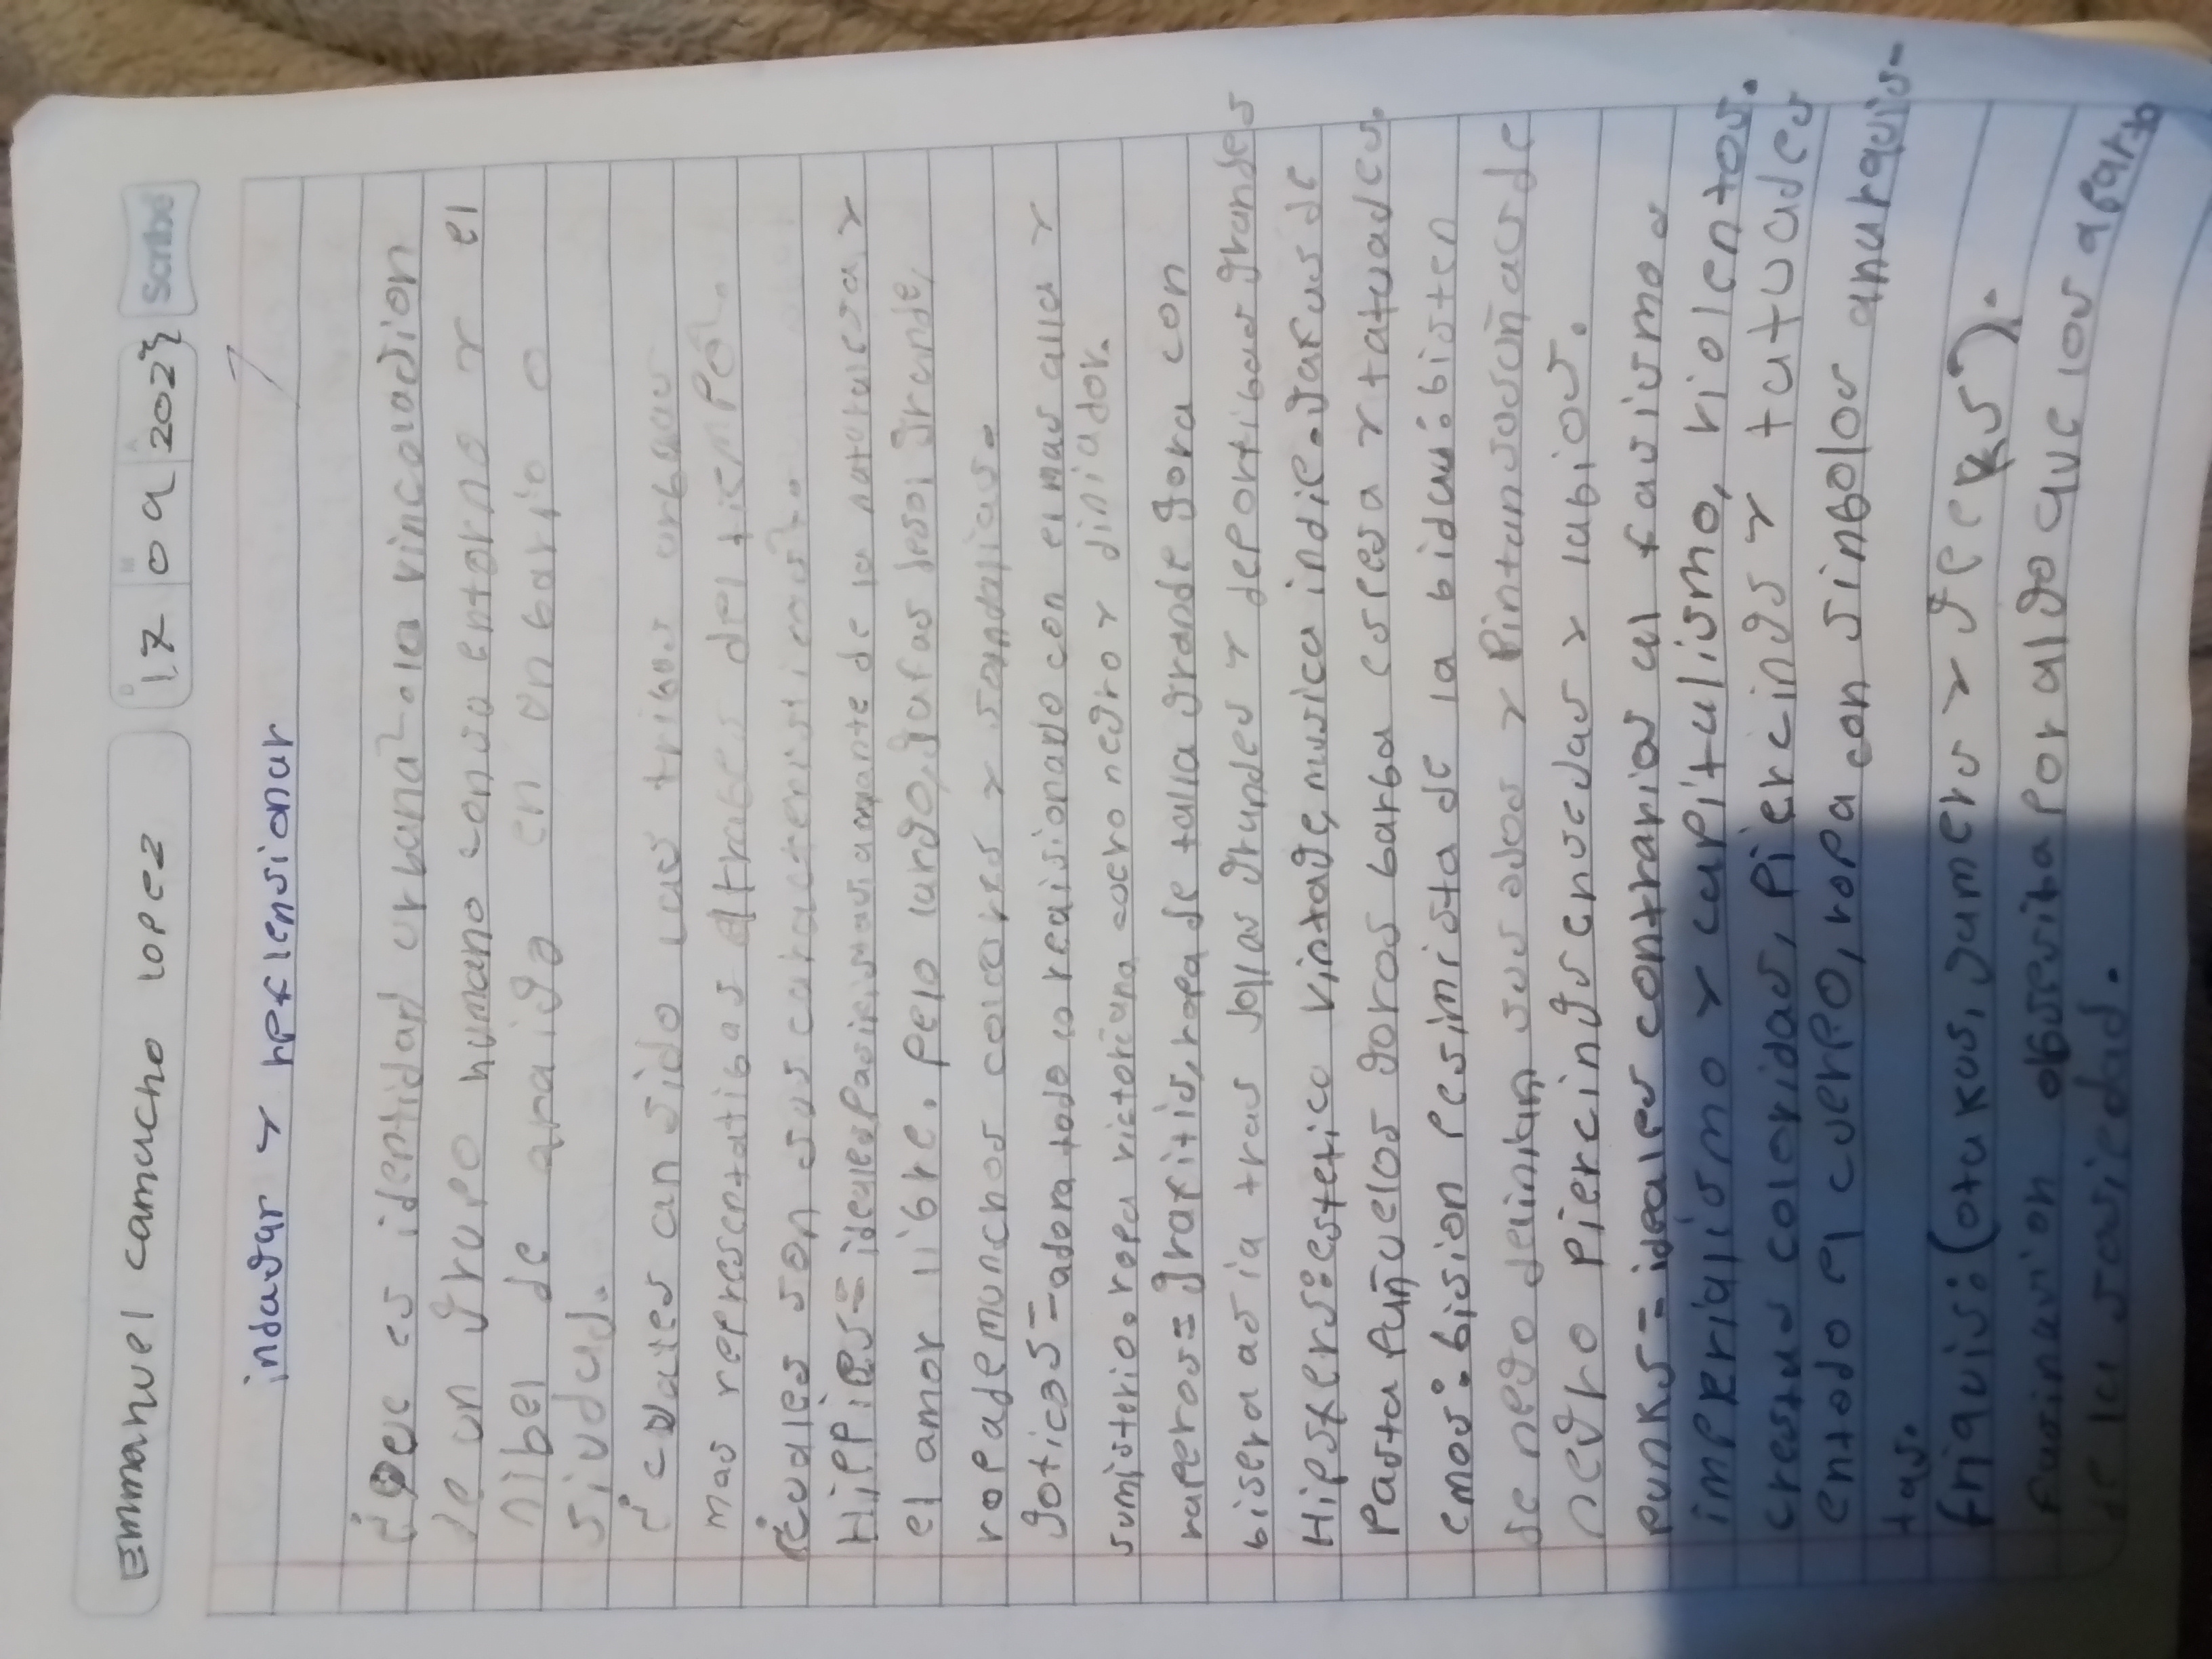 Emmanuel camacho lopez
D M A
17 0 a 2023
Scribe
indagar y reflensionar
¿Que es identidad urbana? - la vinculadion
de un grupo humano con su entorno y el
nibel de araigo en un bario o
siudad.
¿cuales an sido las tribus urbaas
mas representatibas atrabes del tiempo?.
¿cuales son sus caracterissicas?.
Hippies= ideales amante de la naturalesa y
el amor libre. pelo largo, gafas de sol grande,
ropa de munchos colores y sandalias.
goticos- adora todo lo con el mas alla y
sumisterio. ropa victoriana cuero negro y
raperos= grafitis, ropa de talla grande gora con
bisera asia tras jollas grandes y deportibas grandes
Hipsters: estetico vintage, musica indie. gafas de
Pasta Pañuelos goros barba esresa y tatuades.
emos: bision pesimista de la bida:
de nego sus odos y Pintan sus uñas de
negro Piercings en sedas y labios.
punks= ideales contrarios al fasismo.
imperialismo y capitalismo, violentos.
crestas coloridas, Piercings y tatuades
en todo el cuerpo, ropa con sinbolos anarquis-
tas.
friquis: (otakus, gamers y geeks).
fasinasion obsesiba por algo que los aparta
de la sosiedad.